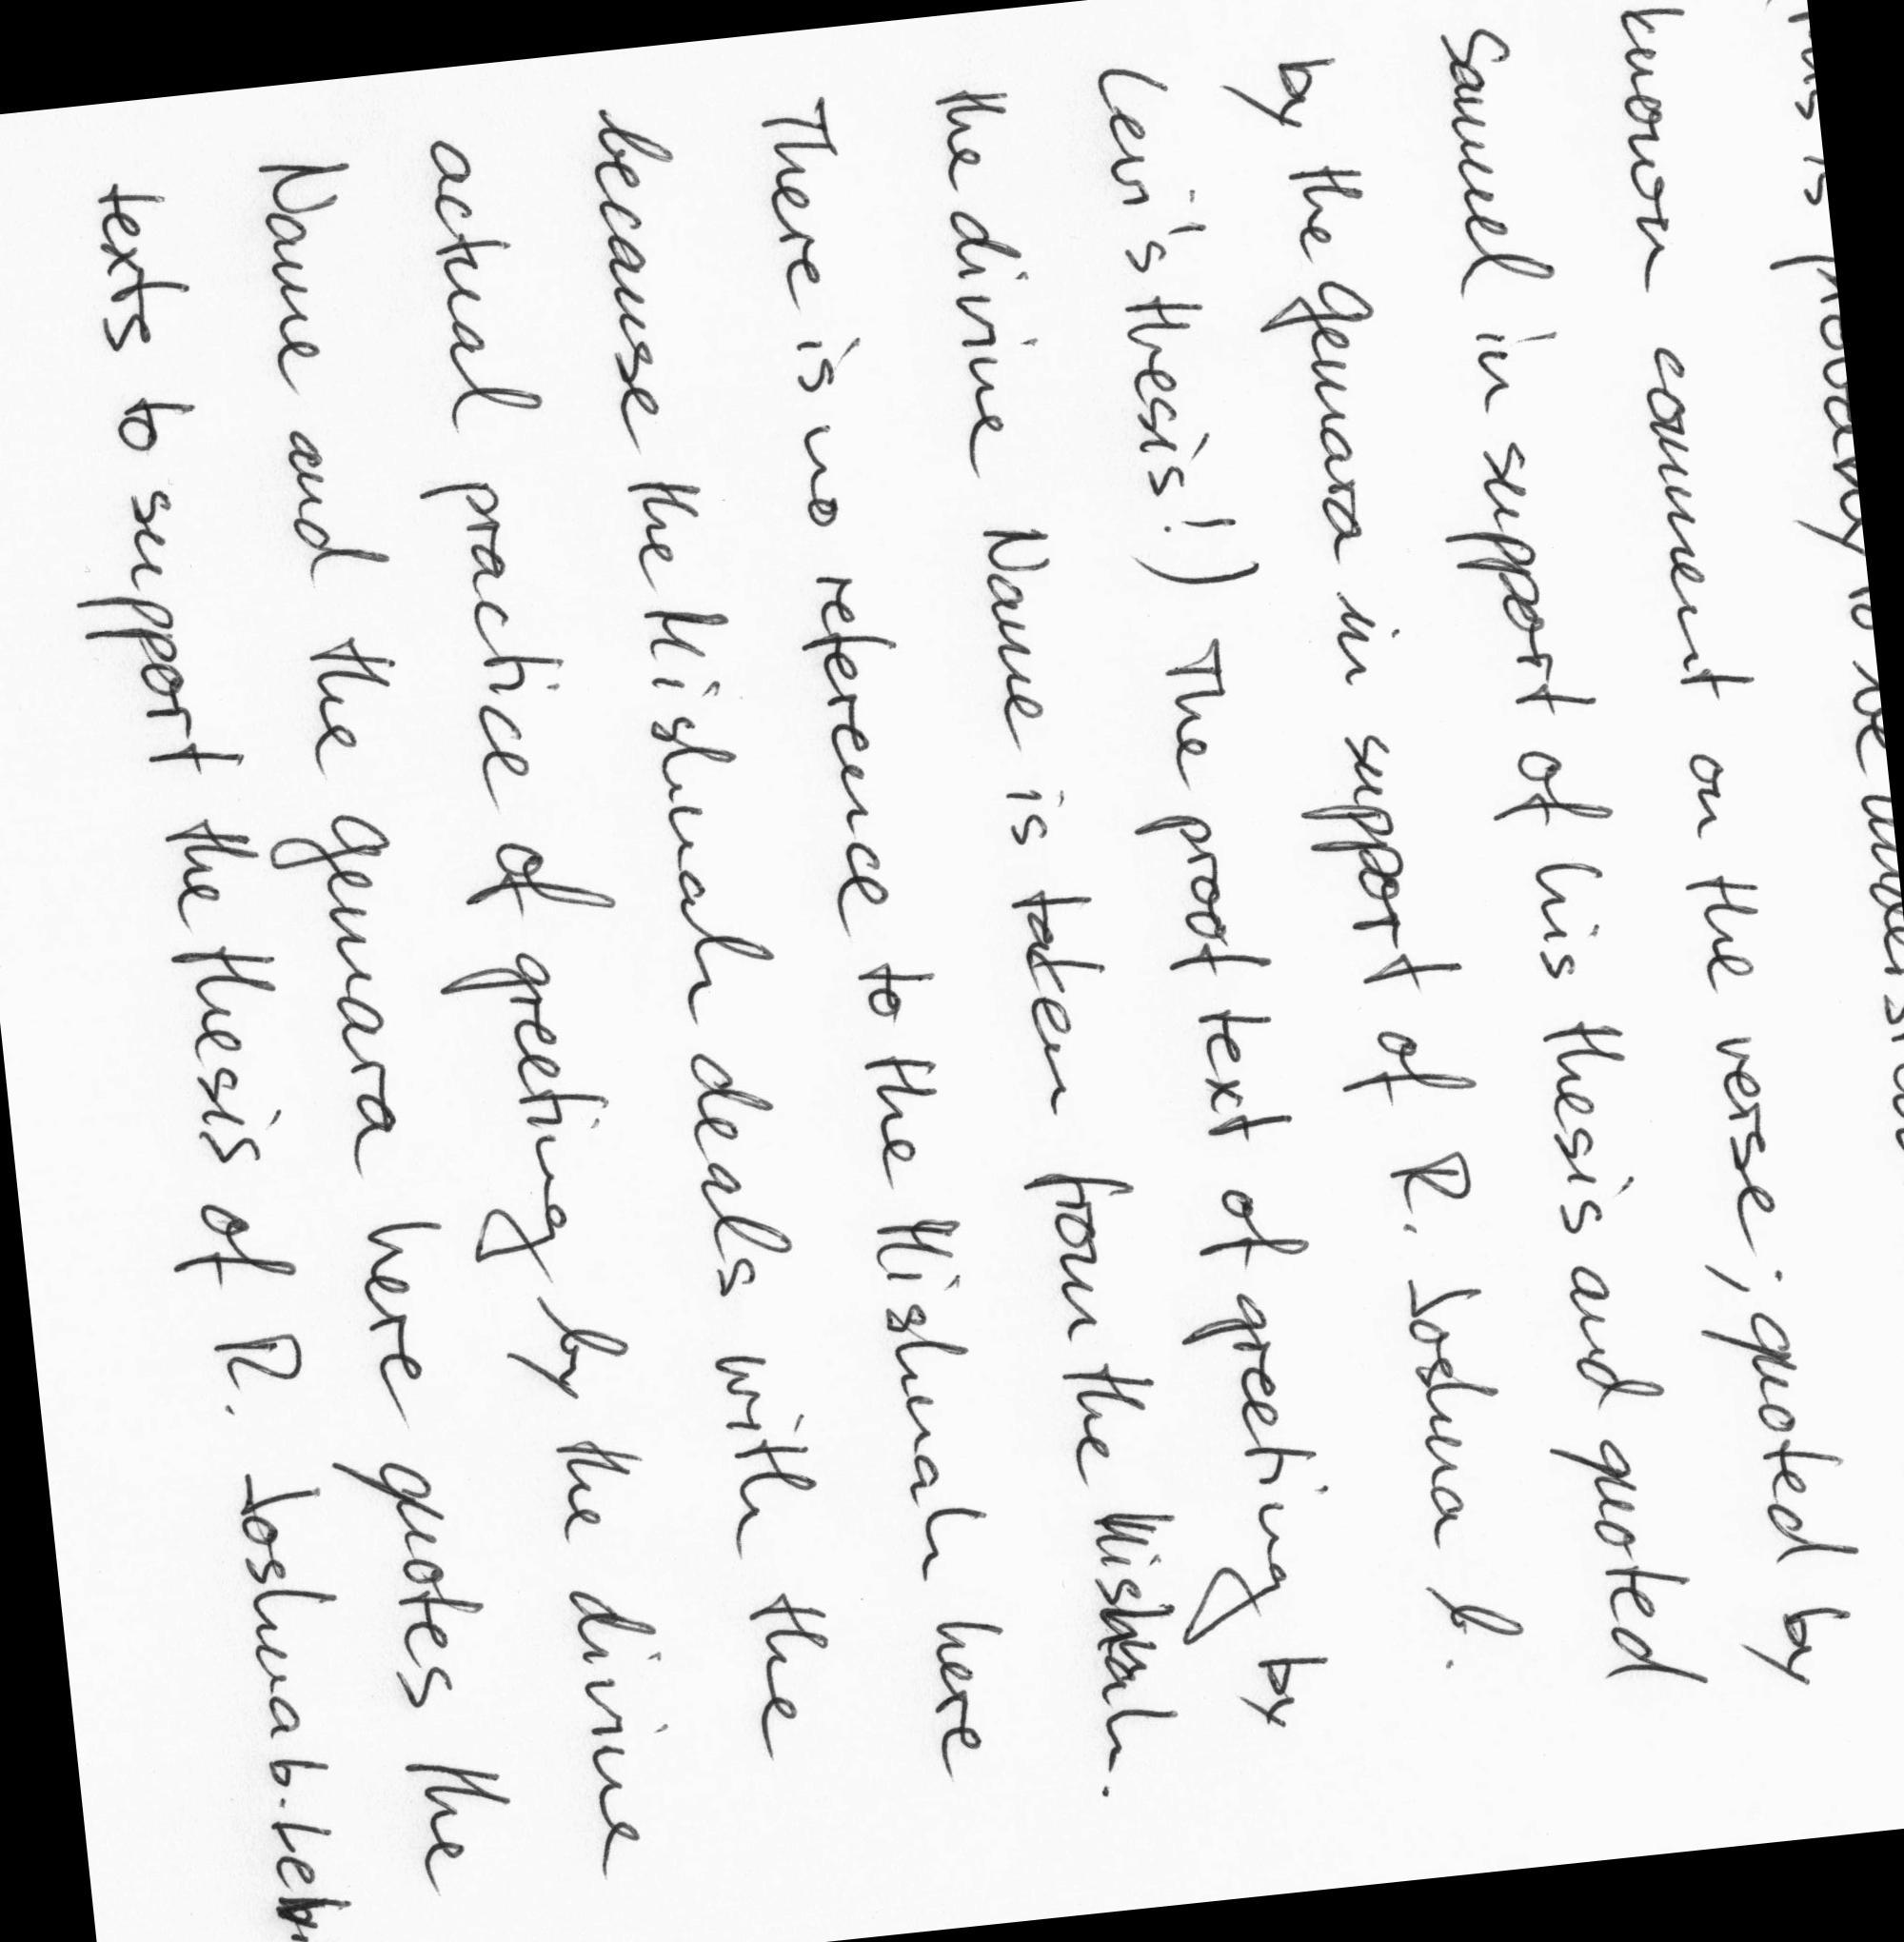 This is probably to be
known comment on the verse; quoted by
Samuel in support of his thesis and quoted
by the Gemara in support of R. Joshua b.
Levi's thesis!) The proof text of greeting by
the divine Name is taken from the Mishnah.
There is no reference to the Mishnah here
because the Mishnah deals with the
actual practice of greeting by the divine
Name and the gemara here quotes the
texts to support the thesis of R. Joshua b. Levi